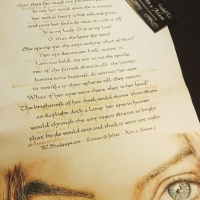 her vestal livery is but sick and green
and none but fools do wear it cast it off
It is my lady O it is my love
O that she knew she were
She speaks yet she says nothing what of that?
Her eye discourses I will answer it
I am too bold tis not to me she speaks
two of the fairest stars in all the heaven
having some business do entreat her eyes
to twinkle in their spheres till they return
What if her eyes were there they in her head?
The brightness of her cheek would shame those stars
as daylight doth a lamp her eyes in heaven
would through the airy region stream so bright
that birds would sing and think it were not night
W Shakespeare - Romeo & Juliet - Act 2, Scene 2